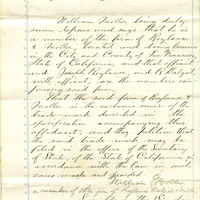 William Moller being duly
sworn deposes and says that he is
a member of the firm of Roylance
& Moller located and doing business
in the City and County of San Francisco
State of California, and that affiant
and Joseph Roylance, and
with affiant, are the members com-
posing said firm
That the said firm of Roylance &
Moller is the exclusive owner of the
trade mark described in the
specification accompanying this
affidavit, and they petition that
the said trade mark may be
filed in the office of the Secretary
of State of the State of California in
accordance with the law in such
cases made and provided
William Moller
a member of the firm of Roylance